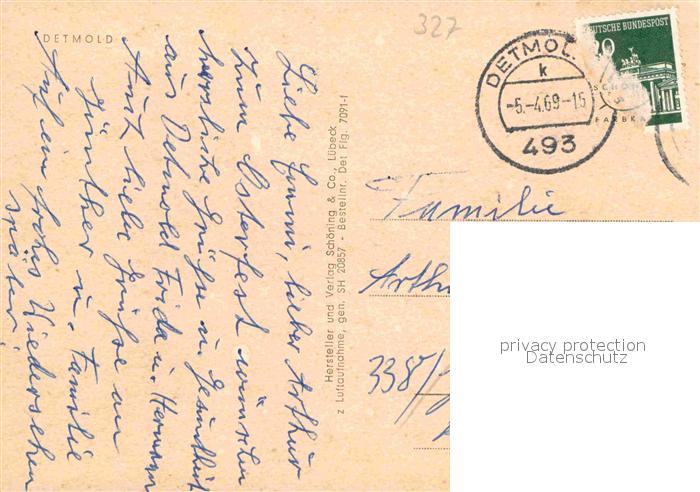 327
DETMOLD
Liebe Emmi, lieber Arthur
zum Osterfest wünschen
herzliche Grüße u. Gesundheit
aus Detmold Frida u. Hermann
Auch liebe Grüße an
Günther u. Familie
Auf ein frohes Wiedersehen
später!
Hersteller und Verlag Schöning & Co., Lübeck
z Luftaufnahme, gen. SH 20857 - Bestellnr. Det Flg. 7091-1
DEUTSCHE BUNDESPOST
20
DETMOL
k
-5.-4.69-15
493
Familie
Arthu
3385/
privacy protection
Datenschutz